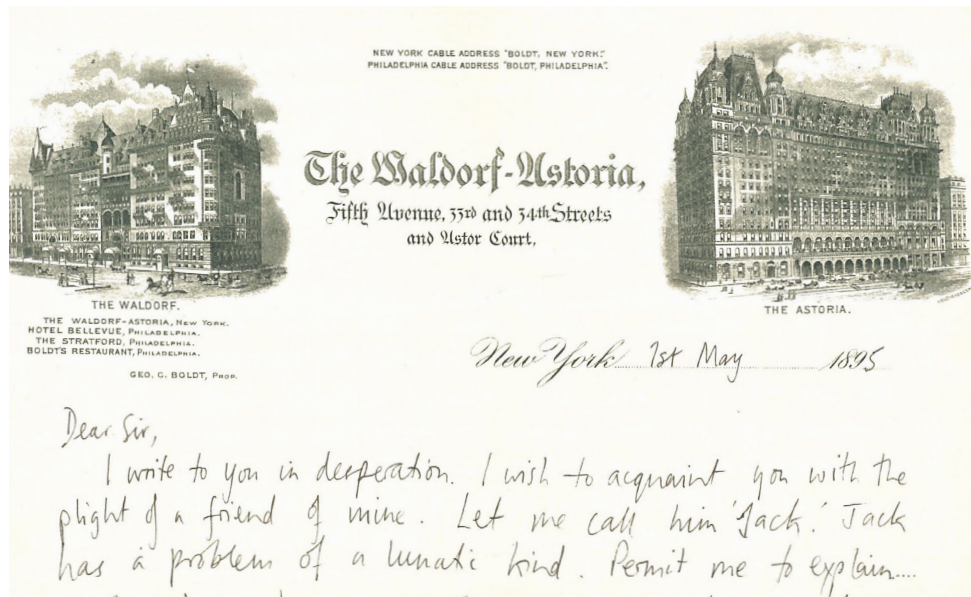 NEW YORK CABLE ADDRESS "BOLDT, NEW YORK."
PHILADELPHIA CABLE ADDRESS "BOLDT, PHILADELPHIA".
The Waldorf-Astoria,
Fifth Avenue, 33rd and 34th Streets
and Astor Court,
THE WALDORF.
THE ASTORIA.
THE WALDORF-ASTORIA, NEW YORK.
HOTEL BELLEVUE, PHILADELPHIA.
THE STRATFORD, PHILADELPHIA.
BOLDT'S RESTAURANT, PHILADELPHIA.
GEO. C. BOLDT, PROP.
New York 1st May 1895
Dear Sir,
I write to you in desperation. I wish to acquaint you with the
plight of a friend of mine. Let me call him 'Jack.' Jack
has a problem of a lunatic kind. Permit me to explain....